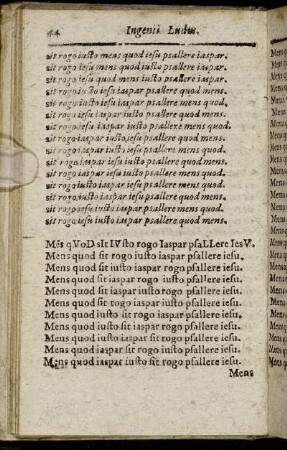 44 Ingenii Ludus.
sit rogo iusto mens quod iesu psallere iaspar.
sit rogo iesu mens quod iusto psallere iaspar.
sit rogo iesu quod mens iusto psallere iaspar.
sit rogo iusto iesu iaspar psallere quod mens.
sit rogo iusto iesu iaspar psallere mens quod.
sit rogo iesu iusto iaspar psallere quod mens.
sit rogo iesu iusto iaspar psallere mens quod.
sit rogo iusto iaspar iesu psallere mens quod.
sit rogo iaspar iesu iusto psallere quod mens.
sit rogo iaspar iusto iesu psallere mens quod.
sit rogo iusto iaspar iesu psallere quod mens.
sit rogo iesu iusto iaspar psallere mens quod.
sit rogo iesu iusto iaspar psallere quod mens.
Mēs qVoD sIt IVsto rogo Iaspar psaLLere IesV.
Mens quod sit rogo iusto iaspar psallere iesu.
Mens quod sit iusto iaspar rogo psallere iesu.
Mens quod sit iaspar rogo iusto psallere iesu.
Mens quod sit iaspar iusto rogo psallere iesu.
Mens quod rogo sit iaspar iusto psallere iesu.
Mens quod rogo sit iusto iaspar psallere iesu.
Mens quod iusto sit iaspar rogo psallere iesu.
Mens quod iaspar sit rogo iusto psallere iesu.
Mens quod iaspar iusto sit rogo psallere iesu.
Mens